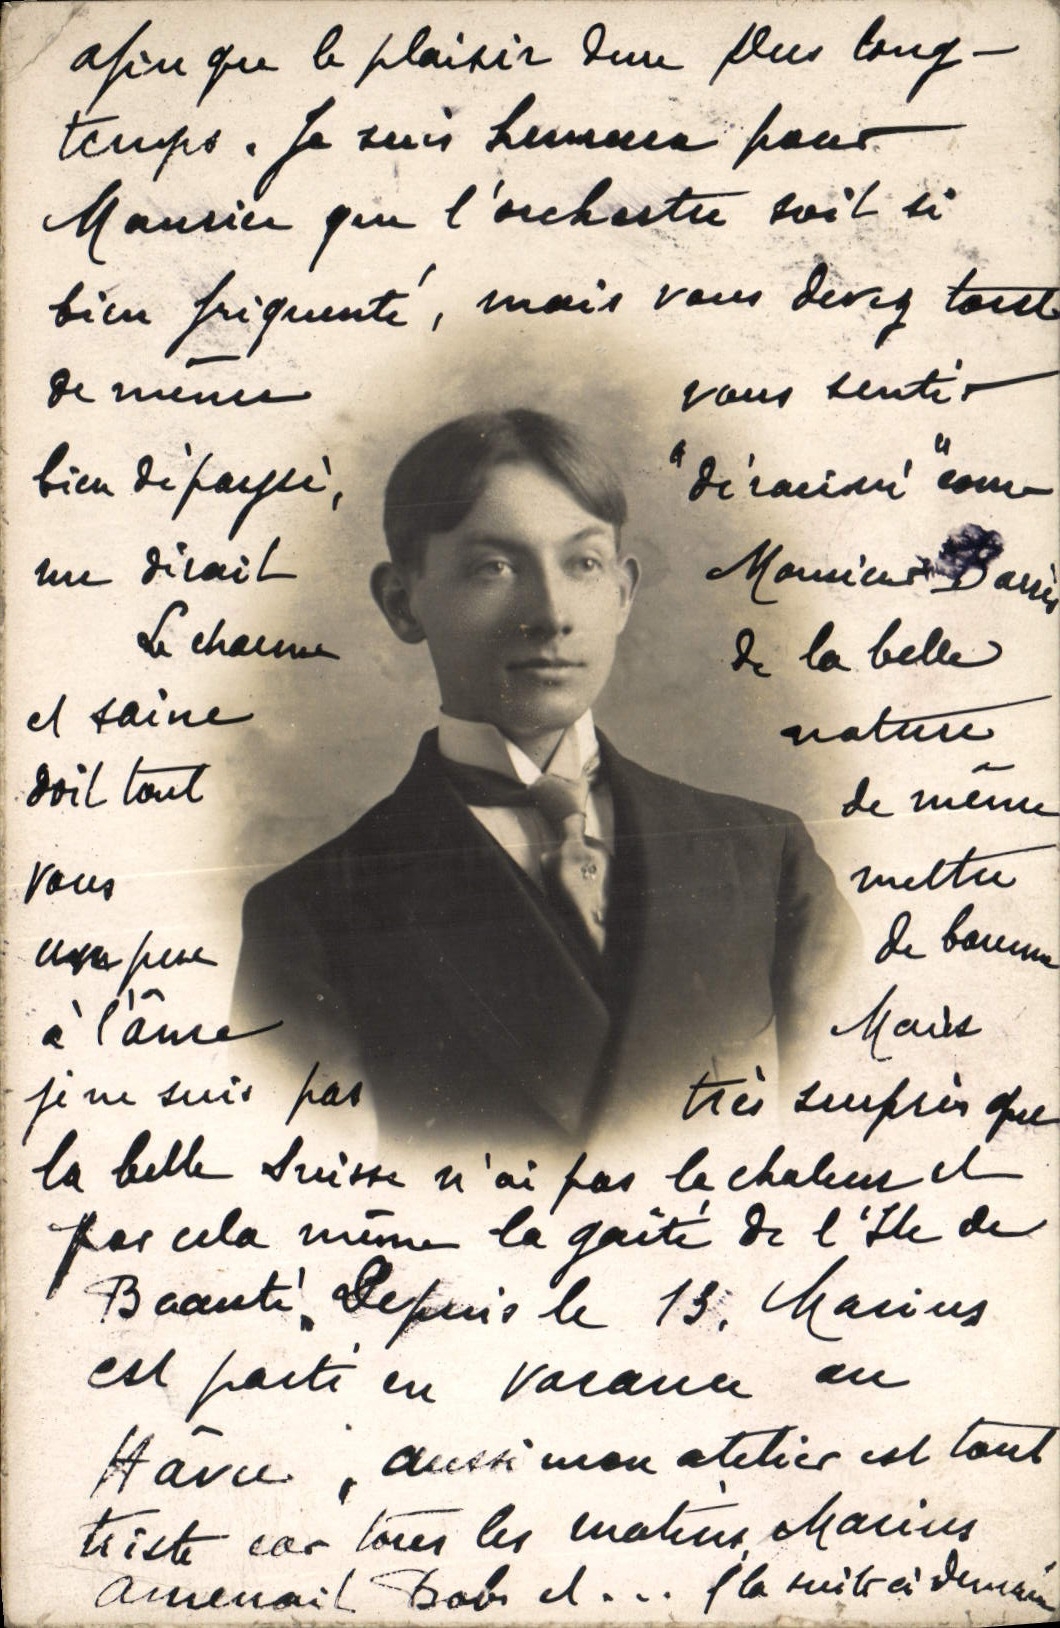 afin que le plaisir dure plus long-
temps. Je suis heureux pour
Maurice que l'orchestre soit si
bien fréquenté, mais vous devez tout
de même vous sentir
bien dépaysé, "déraciné" come
me dirait Monsieur Barrès
Le charme de la belle
et saine nature
doit tout de même
vous mettre
un peu de baume
à l'âme Mais
je ne suis pas très surpris que
la belle Suisse n'ai pas la chaleur et
par cela même la gaîté de l'Ile de
Beauté. Depuis le 13, Marius
est parti en vacance au
Hâvre, aussi mon atelier est tout
triste car tous les matins Marius
amenait Bob et ... (la suite à demain